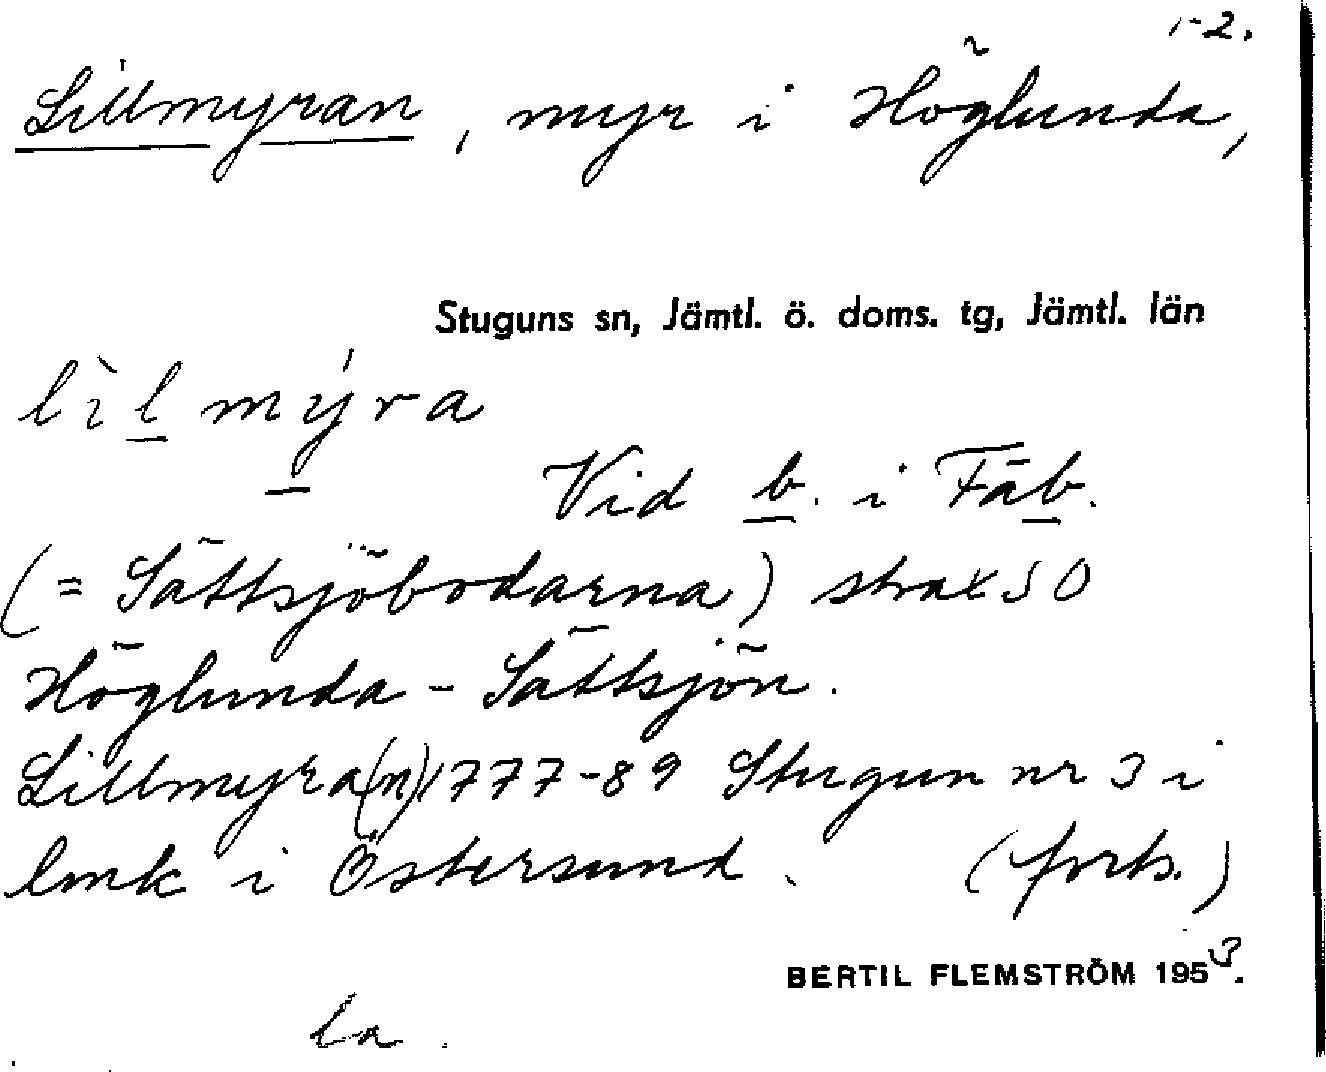 1-2.
Lillmyran, myr i Höglunda,
Stuguns sn, Jämtl. ö. doms. tg, Jämtl. län
lìl mýra
Vid b. i Fäb.
(= Sättsjöbodarna) strax SO
Höglunda - Sättsjön.
Lillmyra(n) 1777-89 Stugun nr 3 i
lmk i Östersund. (forts.)
BERTIL FLEMSTRÖM 1953.